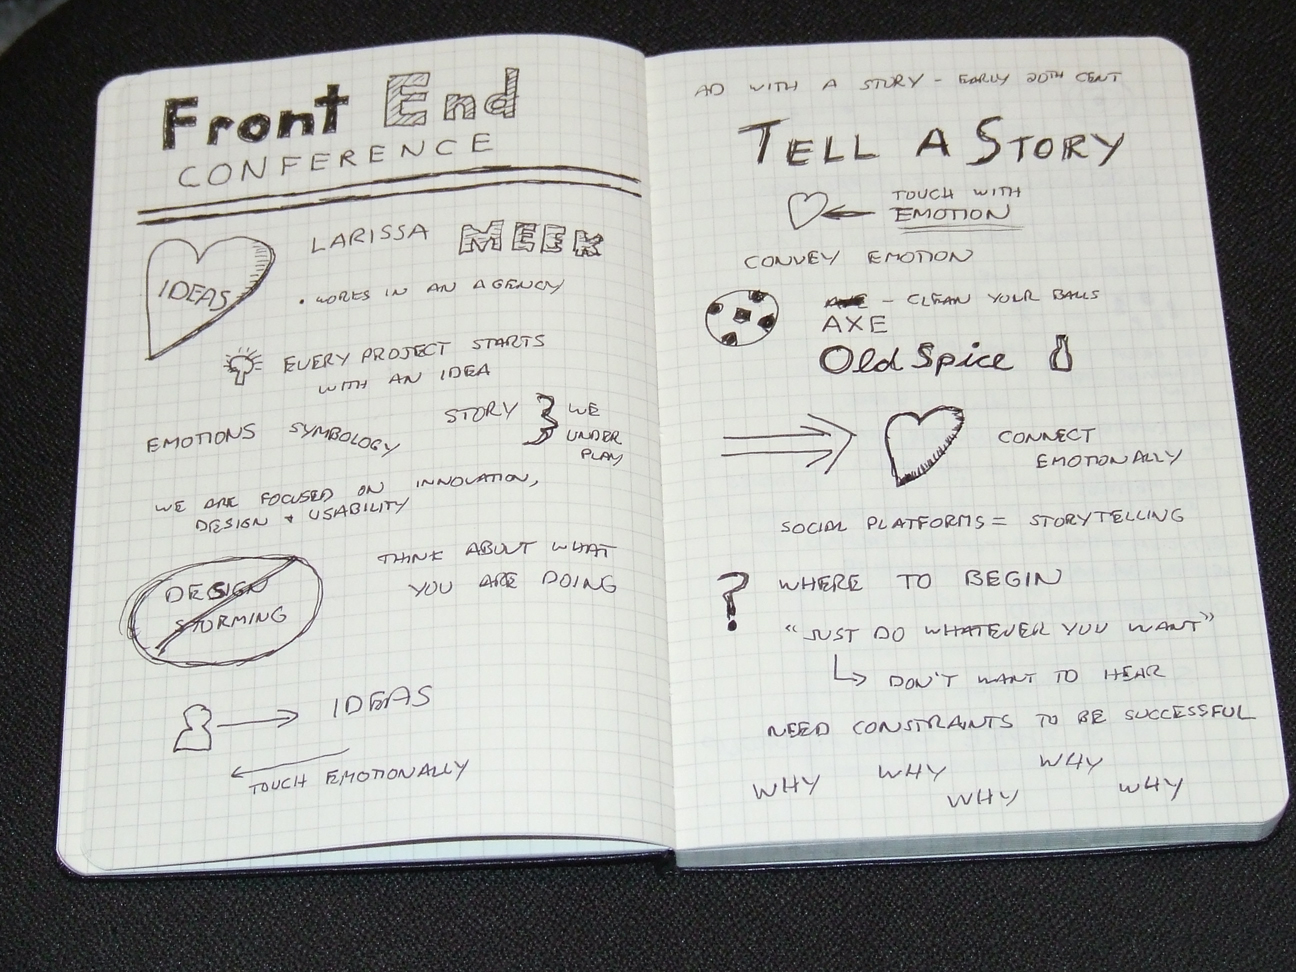 Front End
CONFERENCE
IDEAS
LARISSA MEEK
• WORKS IN AN AGENCY
EVERY PROJECT STARTS
WITH AN IDEA
EMOTIONS SYMBOLOGY STORY } WE
UNDER
PLAY
WE ARE FOCUSED ON INNOVATION,
DESIGN + USABILITY
DESIGN
STORMING
THINK ABOUT WHAT
YOU ARE DOING
IDEAS
TOUCH EMOTIONALLY
AD WITH A STORY - EARLY 20TH CENT
TELL A STORY
TOUCH WITH
EMOTION
CONVEY EMOTION
AXE - CLEAN YOUR BALLS
AXE
Old Spice
CONNECT
EMOTIONALLY
SOCIAL PLATFORMS = STORYTELLING
? WHERE TO BEGIN
"JUST DO WHATEVER YOU WANT"
DON'T WANT TO HEAR
NEED CONSTRAINTS TO BE SUCCESSFUL
WHY WHY WHY WHY WHY